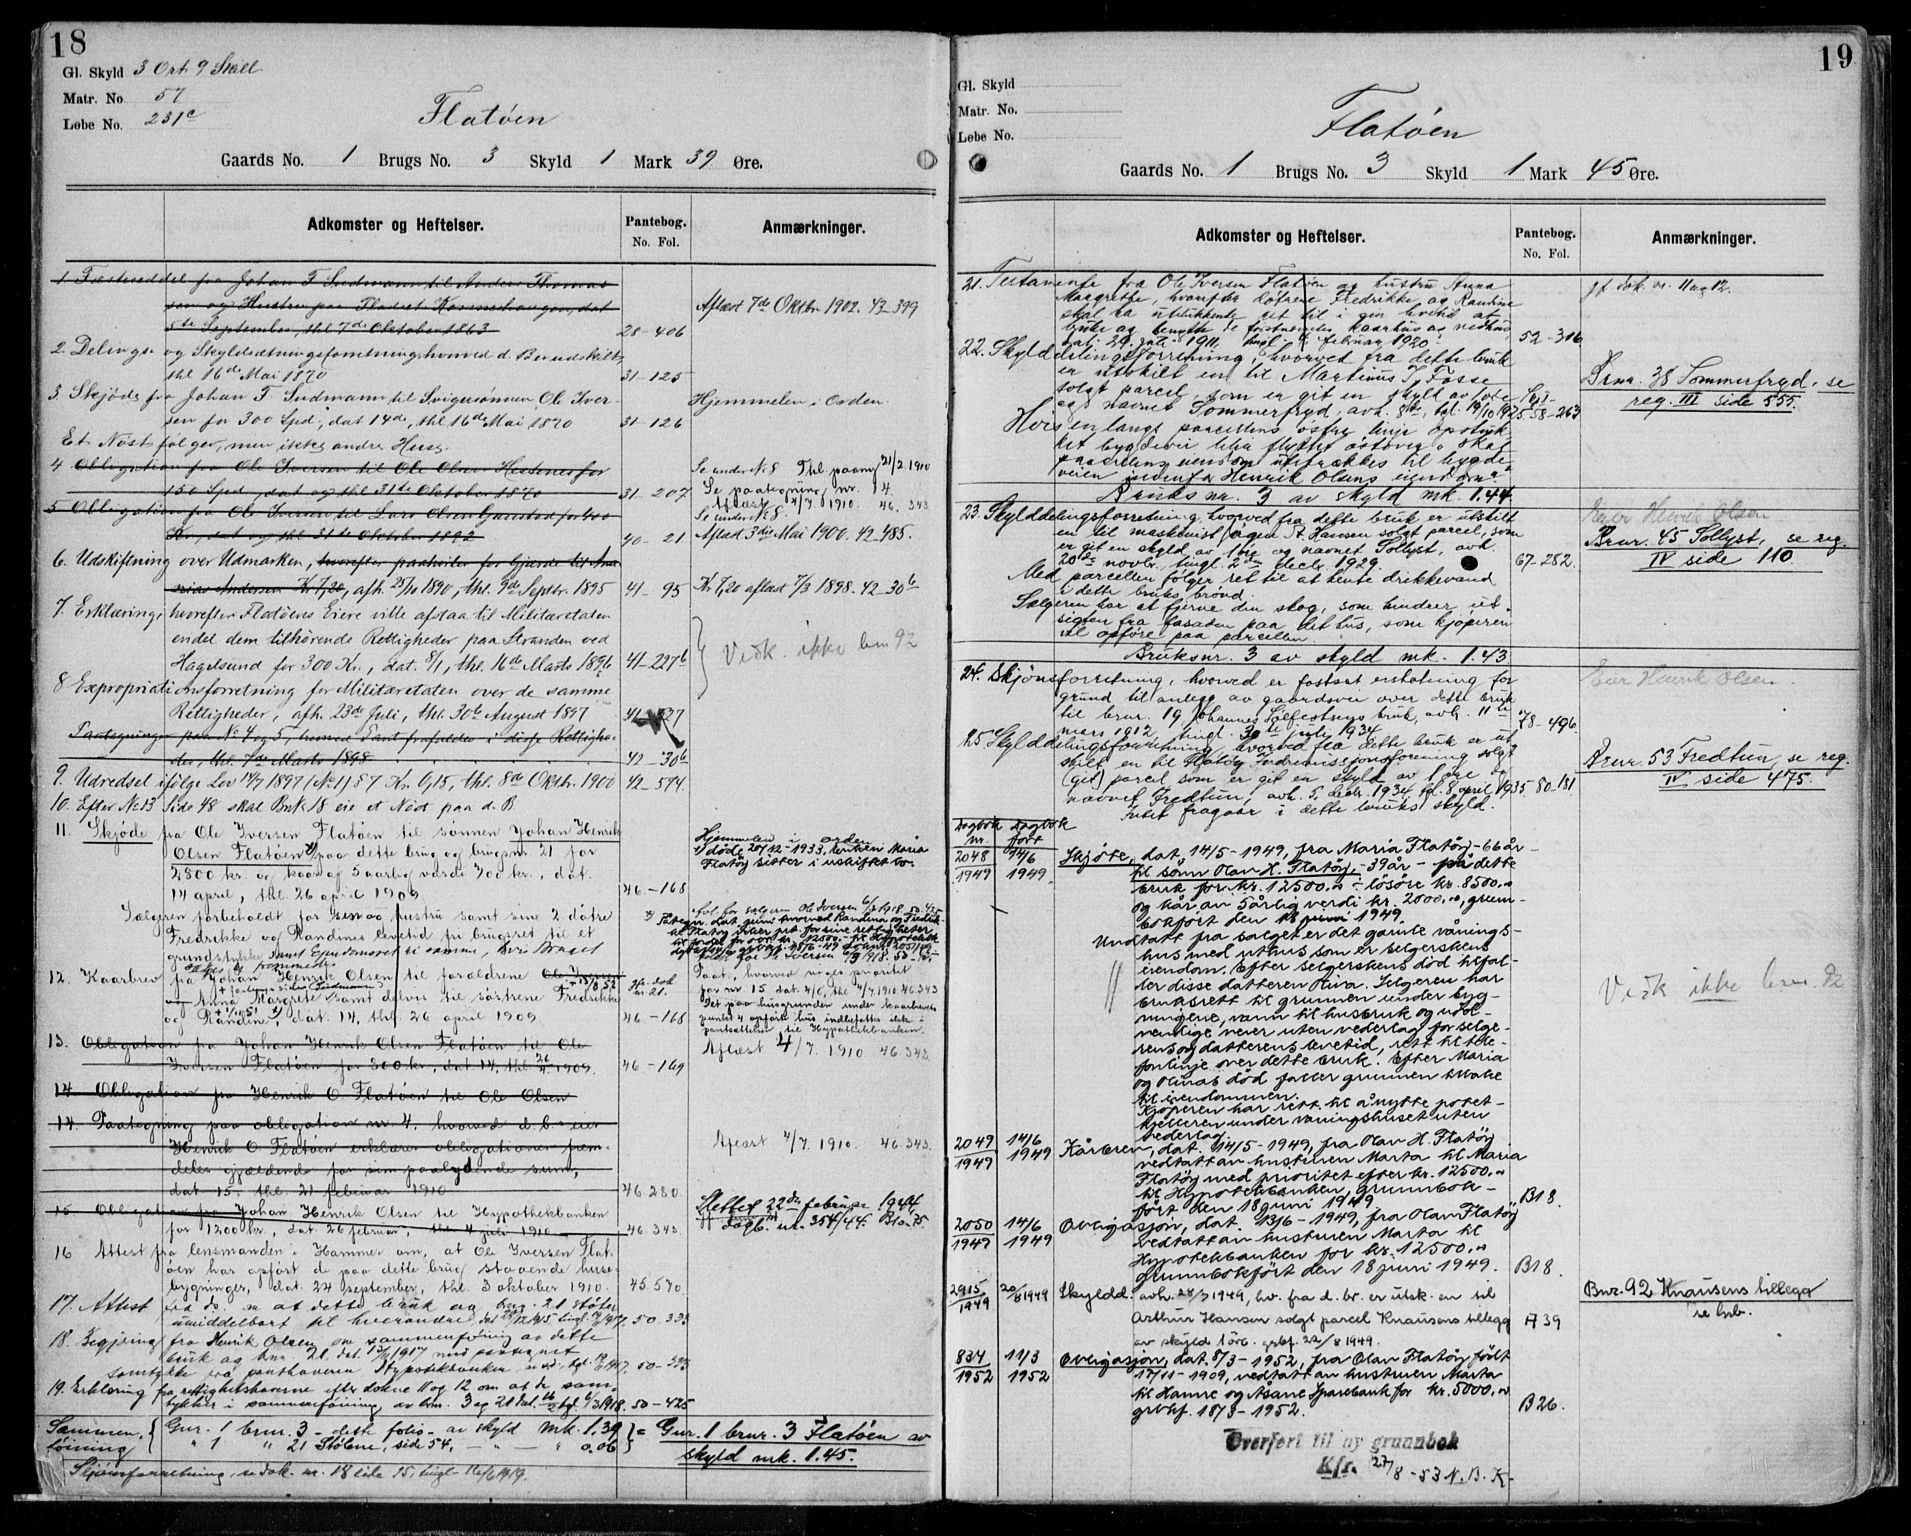 18
Gl. Skyld 3 Ort 9 Skill
Matr. No 57
Løbe No. 231c
Flatøen
Gaards No. 1 Brugs No. 3 Skyld 1 Mark 39 Øre.
Adkomster og Heftelser.
Pantebog.
No. Fol.
Anmærkninger.
1 Fæsteseddel fra Johan F Sudmann til Anders Thomas
sen og Hustru paa Pladset dat
5te September, thl 7de Oktober 1863 28-406
Aflæst 7de Oktbr. 1902. 42-399
2. Delings- og Skyldsætningsforretning hvorved d. B. er udskilt,
thl 16de Mai 1870 31-125
3 Skjøde fra Johan F Sudmann til Svigersønnen Ole Iver-
sen for 300 Spd, dat 14de, thl 16de Mai 1870 31-126
Hjemmelen i Orden.
Et Nøst følger, men ikke andre Huse.
4 Obligation fra Ole Iversen til Ole Olsen Hestenes for
150 Spd, dat og thl 31te Oktober 1870 31-207
Se under N. 8 Thl paam 21/2 1910
Se paategning nr. 14.
Aflæst 4/7. 1910. 46. 343
5 Obligation fra Ole Iversen til Lars Olsen for 400
Kr, dat og thl 31te Oktober 1892 40-21
Se under N. 8.
Aflæst 3die Mai 1900. 42-485.
6. Udskiftning over Udmarken,
Kr 7,20, afh. 25/10 1890, thl. 9de Septbr. 1895 41-95
Kr 7,20 aflæst 7/3 1898. 42-306
7. Erklæring, hvorefter Flatøens Eiere ville afstaa til Militæretaten
endel dem tilhørende Rettigheder paa Stranden ved
Hagelsund for 300 Kr., dat. 8/1, thl. 16de Marts 1896 41-227b
Vedk. ikke bnr 92
8 Expropriationsforretning for Militæretaten over de samme
Rettigheder, afh. 23de Juli, thl. 30te August 1897
Paategning paa No 4 og 5, hvorved Pant frafaldes i disse Rettighe-
der, thl. 7de Marts 1898 42-306
9. Udredsel ifølge Lov 14/7 1897 (No 1) § 7 Kr. 0,15, thl. 8de Oktbr. 1900 42-574.
10. Efter No 13 Side 48 skal Bnk 18 eie et Nøst paa d. B
11. Skjøde fra Ole Iversen Flatøen til sønnen Johan Henrik
Olsen Flatøen paa dette brug og brugsnr. 21 for
2500 kr. og kaar af 5 aarlig værdi 700 kr., dat.
14 april, thl. 26 april 1909 46-168
Hjemmelen i orden
død 20/12-1933. Enken Maria
Flatøy sitter i uskiftet bo.
Sælgeren forbeholdt for sin og hustru samt sine 2 døtre
Fredrikke og Randines levetid fri brugsret til et
grundstykke
12. Kaarbrev fra Johan Henrik Olsen til forældrene Ole Iversen
og Anna Margrete samt delvis til søstrene Fredrikke
og Randine, dat. 14, thl. 26 april 1909. 46-168
Jfr. dok nr. 21.
Paat. hvorved viges prioritet
for nr. 15 dat. 4/6, thl. 4/7. 1910. 46.343
Det paa husgrunden under kaarbrevets
punkt 4 opførte hus indbefattes ikke i
pantsættelsen til Hypothekbanken.
13. Obligation fra Johan Henrik Olsen Flatøen til Ole
Iversen Flatøen for 300 kr, dat 14, thl 26/4 1909. 46-169
Aflæst 4/7. 1910. 46.343.
14 Obligation fra Henrik O Flatøen til Ole Olsen
14. Paategning paa obligation nr 4. hvorved d. b.s eier
Henrik O. Flatøen erklærer obligationen frem-
deles gjældende for sin paalydende sum,
dat 15. thl. 21 februar 1910 46.280.
Aflæst 4/7. 1910. 46.343.
15 Obligation fra Johan Henrik Olsen til Hypothekbanken
for 1200 kr., dat. 26 februar, thl. 4 juli 1910. 46.343.
Slettet 22de februar 1944,
jf dagb. nr. 354/44. B10-75
16 Attest fra lensmanden i Hammer om, at Ole Iversen Flat-
øen har opført de paa dette brug staaende huse-
bygninger, dat. 24 september, thl. 3 oktober 1910. 45.570.
17. Attest fra do. om at dette bruk og bnr. 21 støter
umiddelbart til hverandre 50-393
18. Begjæring fra Henrik Olsen om sammenføining av dette
bruk og bnr 21, dat. 1917 med paategnet
samtykke fra panthaveren Hypotekbanken 50-393
19. Erklæring fra rettighetshaverne efter dokne 11 og 12 om at de sam-
tykker i sammenføining av bnr. 3 og 21 1918. 50-425
Sammen-
føining
Gnr. 1 brnr. 3 - dette folio - av skyld mk. 1.39
" 1 " 21 Stølene, side 54, - " - 0.06
= Gnr. 1 brnr. 3 Flatøen av
skyld mk. 1.45.
Skjønsforretning, se dok. nr. 18 side 15, tingl. 16/6 1919.
19
Gl. Skyld
Matr. No.
Løbe No.
Flatøen
Gaards No. 1 Brugs No. 3 Skyld 1 Mark 45 Øre.
Adkomster og Heftelser.
Pantebog.
No. Fol.
Anmærkninger.
21. Testamente fra Ole Iversen Flatøen og hustru Anna
Margrethe, hvorefter døtrene Fredrikke og Randine
skal ha utelukkende ret til i sin levetid at
bruke og benytte
1911, tingl. februar 1920. 52-316
jf. dok. nr. 11 og 12.
22. Skylddelingsforretning, hvorved fra dette bruk
er utskilt en til Martinus J. Fosse
solgt parcel, som er git en skyld av 1 øre
og navnet Sommerfryd, avh. 8de, tgl. 19/10 1925-58-263
Brnr. 38 Sommerfryd, se
reg. III side 555.
Hvis en langs parcellens østre linje opstuk-
ket bygdevei blir flyttet østover, skal
parcellens eiendom utstrækkes til bygde-
veien indenfor Henrik Olsens eiendom.
Bruksnr. 3 av skyld mk. 1.44
23. Skylddelingsforretning, hvorved fra dette bruk er utskilt
en til maskinist Hagen St. Hansen solgt parcel, som
er git en skyld av 1 øre og navnet Sollyst, avh.
20de novbr., tingl. 2den decbr. 1929. 67-282.
Eier Henrik Olsen
Brnr. 45 Sollyst, se reg.
IV side 110.
Med parcellen følger ret til at hente drikkevand
i dette bruks brønd.
Sælgeren har at fjerne den skog, som hindrer ut-
sigten fra fasaden paa det hus, som kjøperen
vil opføre paa parcellen.
Bruksnr. 3 av skyld mk. 1.43
24. Skjønsforretning, hvorved er fastsat erstatning for
grund til anlegg av gaardsvei over dette bruk
til brnr. 19 Johannes Silfestsens bruk, avh. 11te
mars 1912, tingl. 30te juli 1934 78-496
Eier Henrik Olsen.
25. Skylddelingsforretning hvorved fra dette bruk er ut-
skilt en til Flatøy Indremisjonsforening solgt
(git) parcel som er git en skyld av 1 øre og
navnet Fredtun, avh. 5. decbr. 1934, tgl. 8 april 1935-80-181
Intet fragaar i dette bruks skyld.
Brnr. 53 Fredtun, se reg.
IV side 475.
Dagbok nr
Dagbok ført
2048/1949 14/6 1949 Skjøte, dat. 14/5-1949, fra Maria Flatøy - 66 år -
til sønn Olav H. Flatøy, - 39 år - på dette
bruk for kr. 12500.00 + løsøre kr. 8500.00
og kår av 5årlig verdi kr. 2000.00, grunn-
bokført den 18 juni 1949.
Undtatt fra salget er det gamle vånings-
hus med uthus som er selgerskens
eiendom. Efter selgerskens død tilfal-
ler disse datteren Olina. Selgeren har
bruksrett til grunnen under byg-
ningene, vann til husbruk og nød-
vendige veier uten vederlag for selge-
rens og datterens levetid, rett til tele-
fonlinje over dette bruk. Efter Maria
og Olinas død faller grunnen tilbake
til eiendommen.
Kjøperen har rett til å nytte potet-
kjelleren under våningshuset uten
vederlag.
Vedk ikke bnr. 92
2049/1949 14/6 1949 Kårbrev, dat. 14/5-1949, fra Olav H. Flatøy
vedtatt av hustruen Marta til Maria
Flatøy med prioritet efter kr. 12500.00
til Hypotekbanken, grunnbok-
ført den 18 juni 1949. B18.
2050/1949 14/6 1949 Obligasjon, dat. 13/6-1949, fra Olav Flatøy
vedtatt av hustruen Marta til
Hypotekbanken for kr. 12500.00
grunnbokført den 18 juni 1949. B18.
2915/1949 20/8 1949 Skyldd. avh. 28/7 1949, hv. fra d. br. er utsk. en til
Arthur Hansen solgt parcel Knausens tillegg
av skyld 1 øre. grbf. 22/8 1949. A39
Bnr. 92 Knausens tillegg
se lnb.
834/1952 11/3 1952 Obligasjon, dat. 8/3-1952, fra Olav Flatøy født
17/11-1909, vedtatt av hustruen Marta
til Hamre og Åsane Sparebank for kr. 5000.00
grbkf. 18/3-1952. B26.
Overført til ny grunnbok
Kfr. 27/8-53 N.B.K.